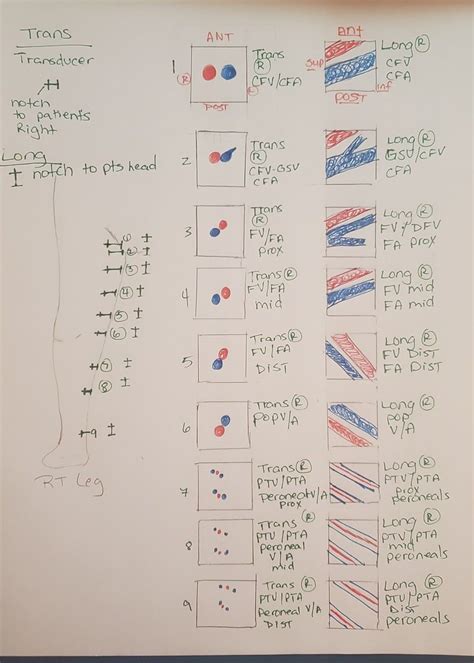 Trans
Transducer
notch
to patients
Right
Long
notch to pts head
1
2
3
4
5
6
7
8
9
RT Leg
ANT
1
R
L
POST
Trans
R
CFV/CFA
ant
sup
inf
POST
Long R
CFV
CFA
2
Trans
R
CFV-GSV
CFA
Long R
GSV/CFV
CFA
3
Trans
R
FV/FA
prox
Long R
FV/DFV
FA prox
4
Trans R
FV/FA
mid
Long R
FV mid
FA mid
5
Trans R
FV/FA
DIST
Long R
FV DIST
FA DIST
6
Trans R
POPV/A
Long R
pop
V/A
7
Trans R
PTV/PTA
peronealv/A
prox
Long R
PTV/PTA
prox
peroneals
8
Trans R
PTV/PTA
peroneal
V/A
mid
Long R
PTV/PTA
mid
peroneals
9
Trans R
PTV/PTA
Peroneal V/A
DIST
Long R
PTV/PTA
DIST
peroneals